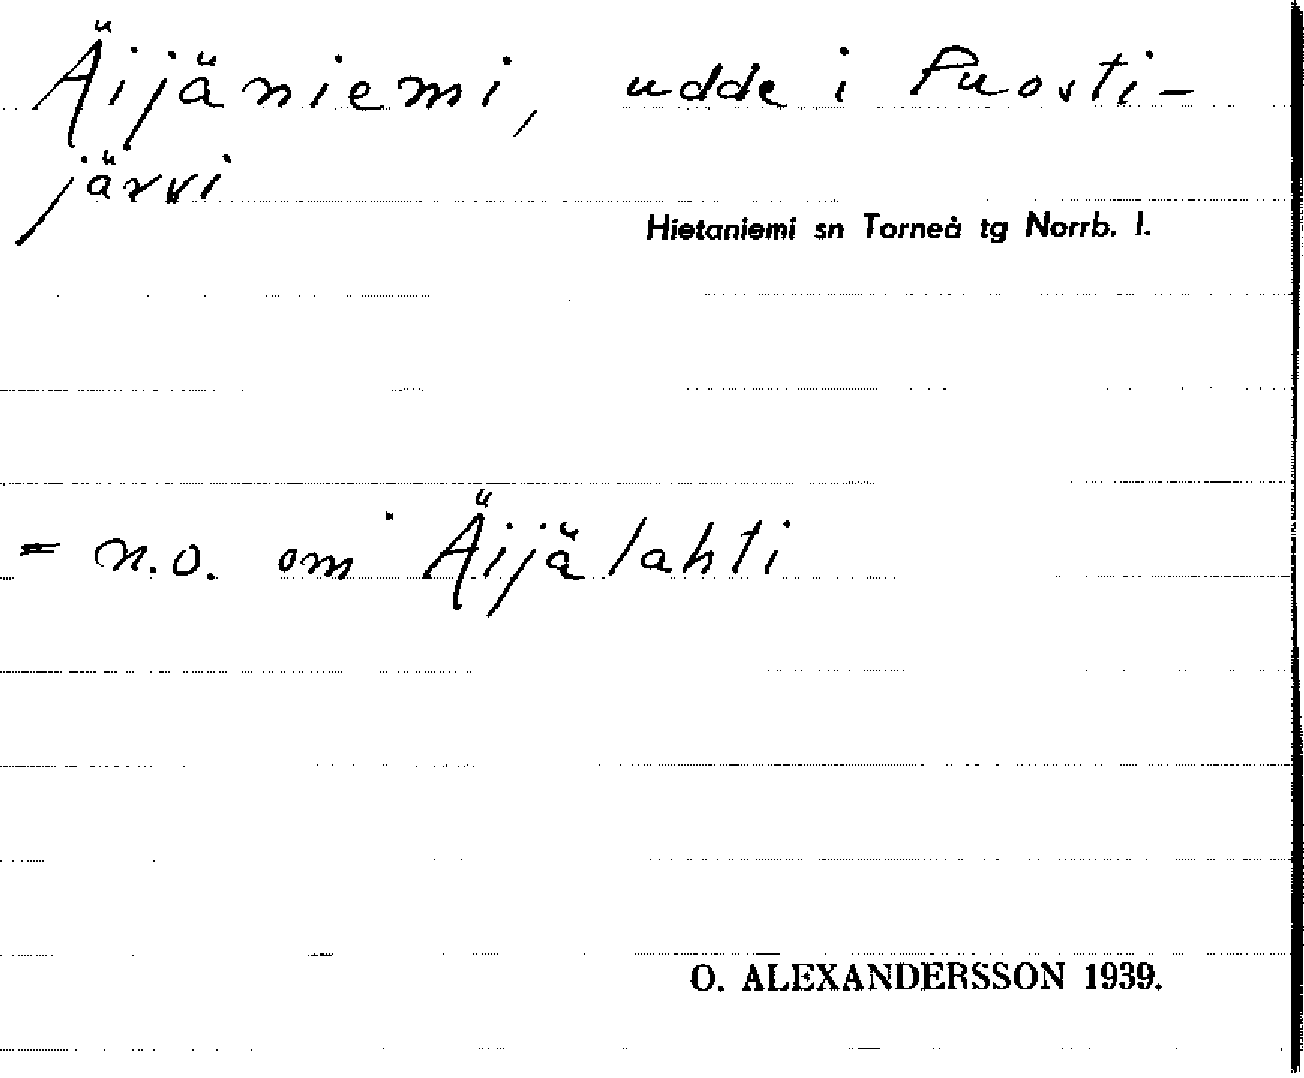 Äijäniemi, udde i Puosti-
järvi
Hietaniemi sn Torneå tg Norrb. l.
= n.o. om Äijälahti
O. ALEXANDERSSON 1939.